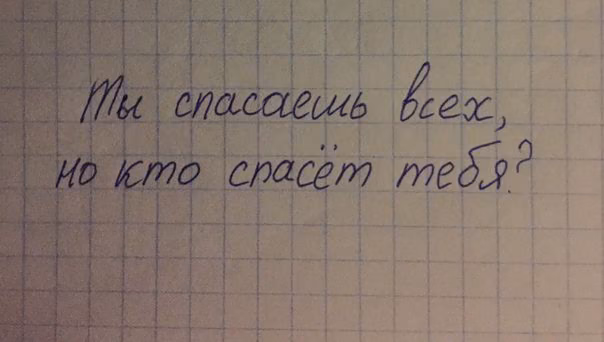 Ты спасаешь всех,
но кто спасёт тебя?